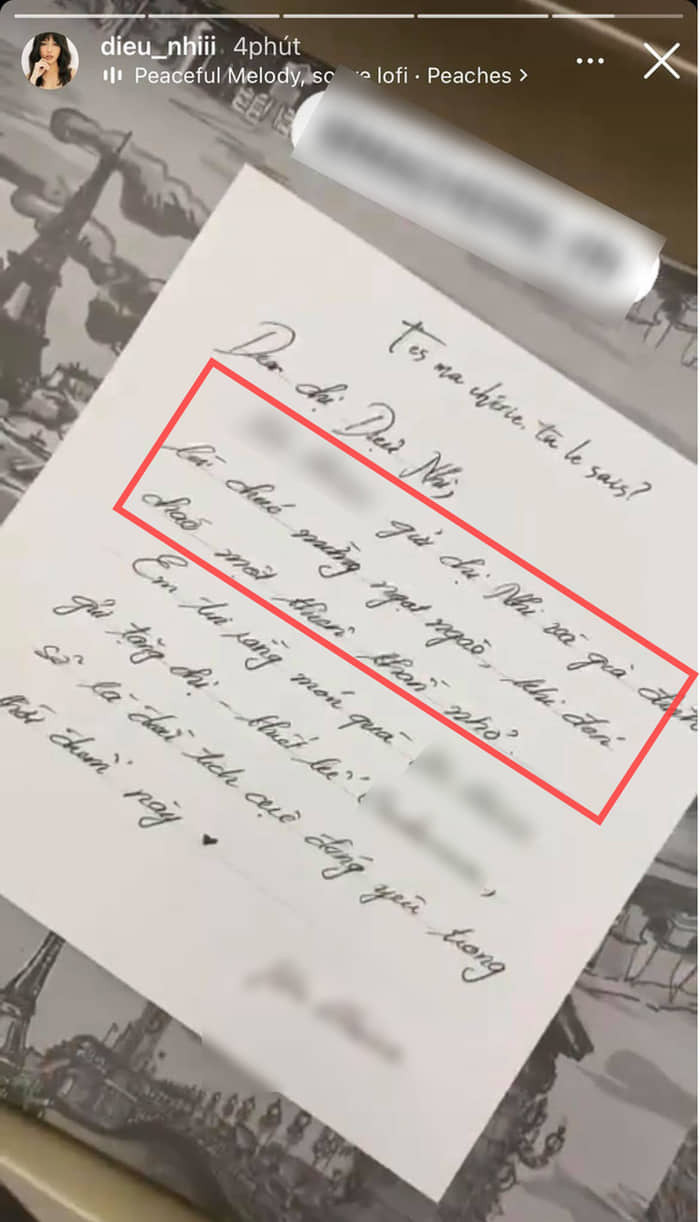 dieu_nhiii 4phút
Peaceful Melody, so lofi · Peaches >
T'es ma chérie, tu le sais?
Dear chị Diệu Nhi,
gửi chị Nhi và gia đình
lời chào mừng ngọt ngào, khi đến
chào một thiên thần nhỏ.
Em tin rằng món quà
gửi tặng chị - thiết kế
sẽ là dấu tích cực đáng yêu trong
thời điểm này ♥